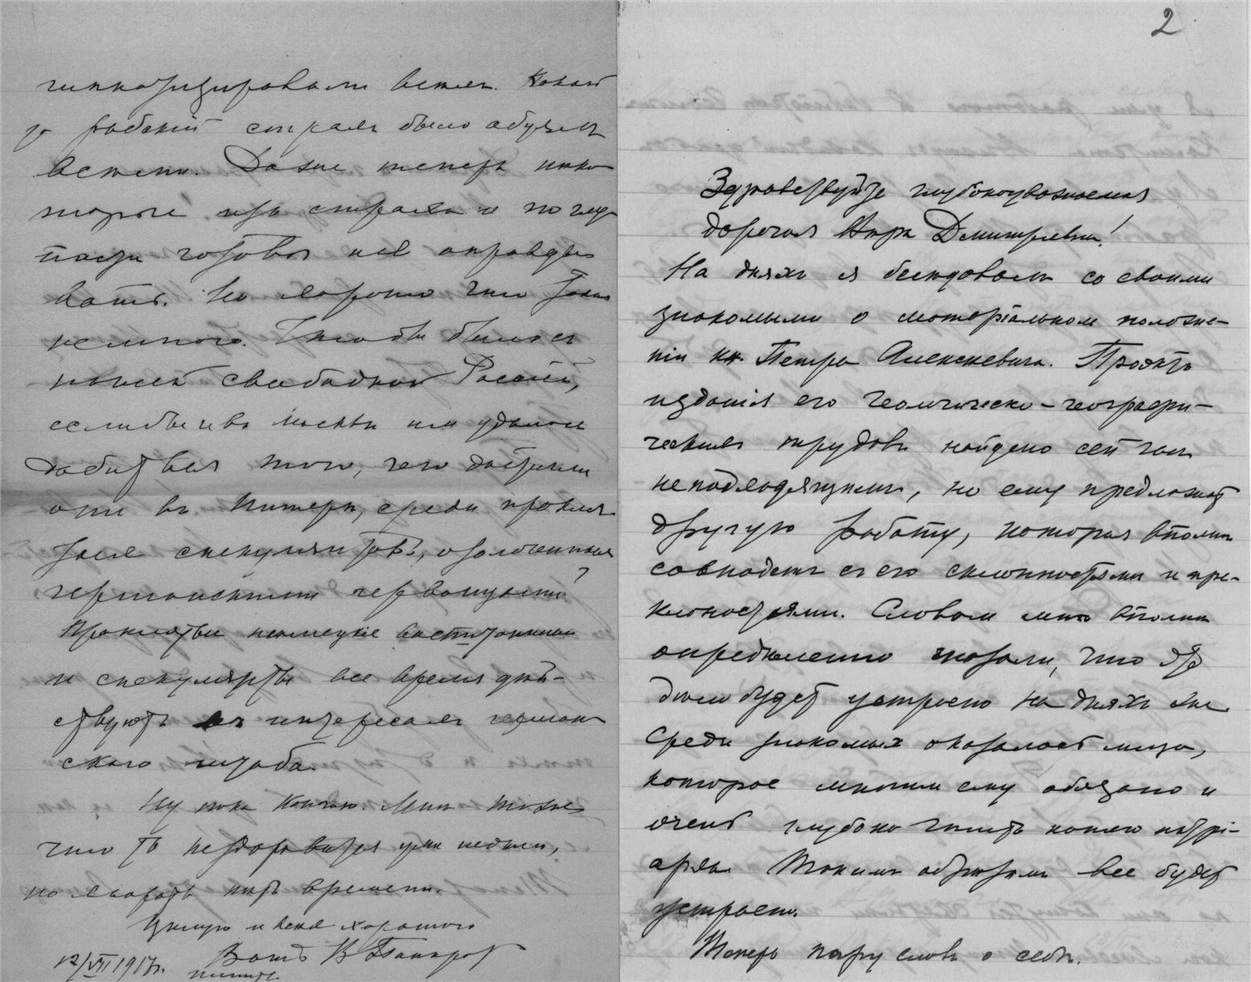 гипнотизировали всѣхъ. Какой
то рабский страхъ было обуялъ
всѣхъ. Даже теперь нѣко
торые изъ страха и по глу
пости готовы всё оправды
вать. Но хорошо что таких
немного. Что было бы съ
нашей свободной Россией,
если бы и въ Москвѣ имъ удалось
добиться того, чего достигли
они въ Питерѣ, среди
спекулянтовъ, озолоченныхъ
германскими червонцами?
Проклятые немецкие
и спекулянты все время дѣй-
ствуютъ въ интересахъ герман
ского штаба.
Ну пока кончаю. Мнѣ тоже
что то нездоровится уже неделю,
но хворать нѣтъ времени.
Целую и всего хорошего
Вашъ В
12/VII 1917 г.
2
Здравствуйте глубокоуважаемая
дорогая Дмитриевна!
На дняхъ я беседовалъ со своими
знакомыми о матеріальном положе-
ніи кн. Петра Алексеевича. Проэктъ
изданія его геологическо-географи-
ческихъ трудовъ найдено сейчас
неподходящимъ, но ему предложат
другую работу, которая вполнѣ
совпадетъ съ его склонностями и на-
клонностями. Словом мнѣ вполнѣ
определенно сказали, что это
дело будет устроено на дняхъ же
Среди знакомых оказалось лицо,
которое многим ему обязано и
очень глубоко чтитъ нашего патрі-
арха. Такимъ образомъ все будет
устроено.
Теперь пару слов о себѣ.